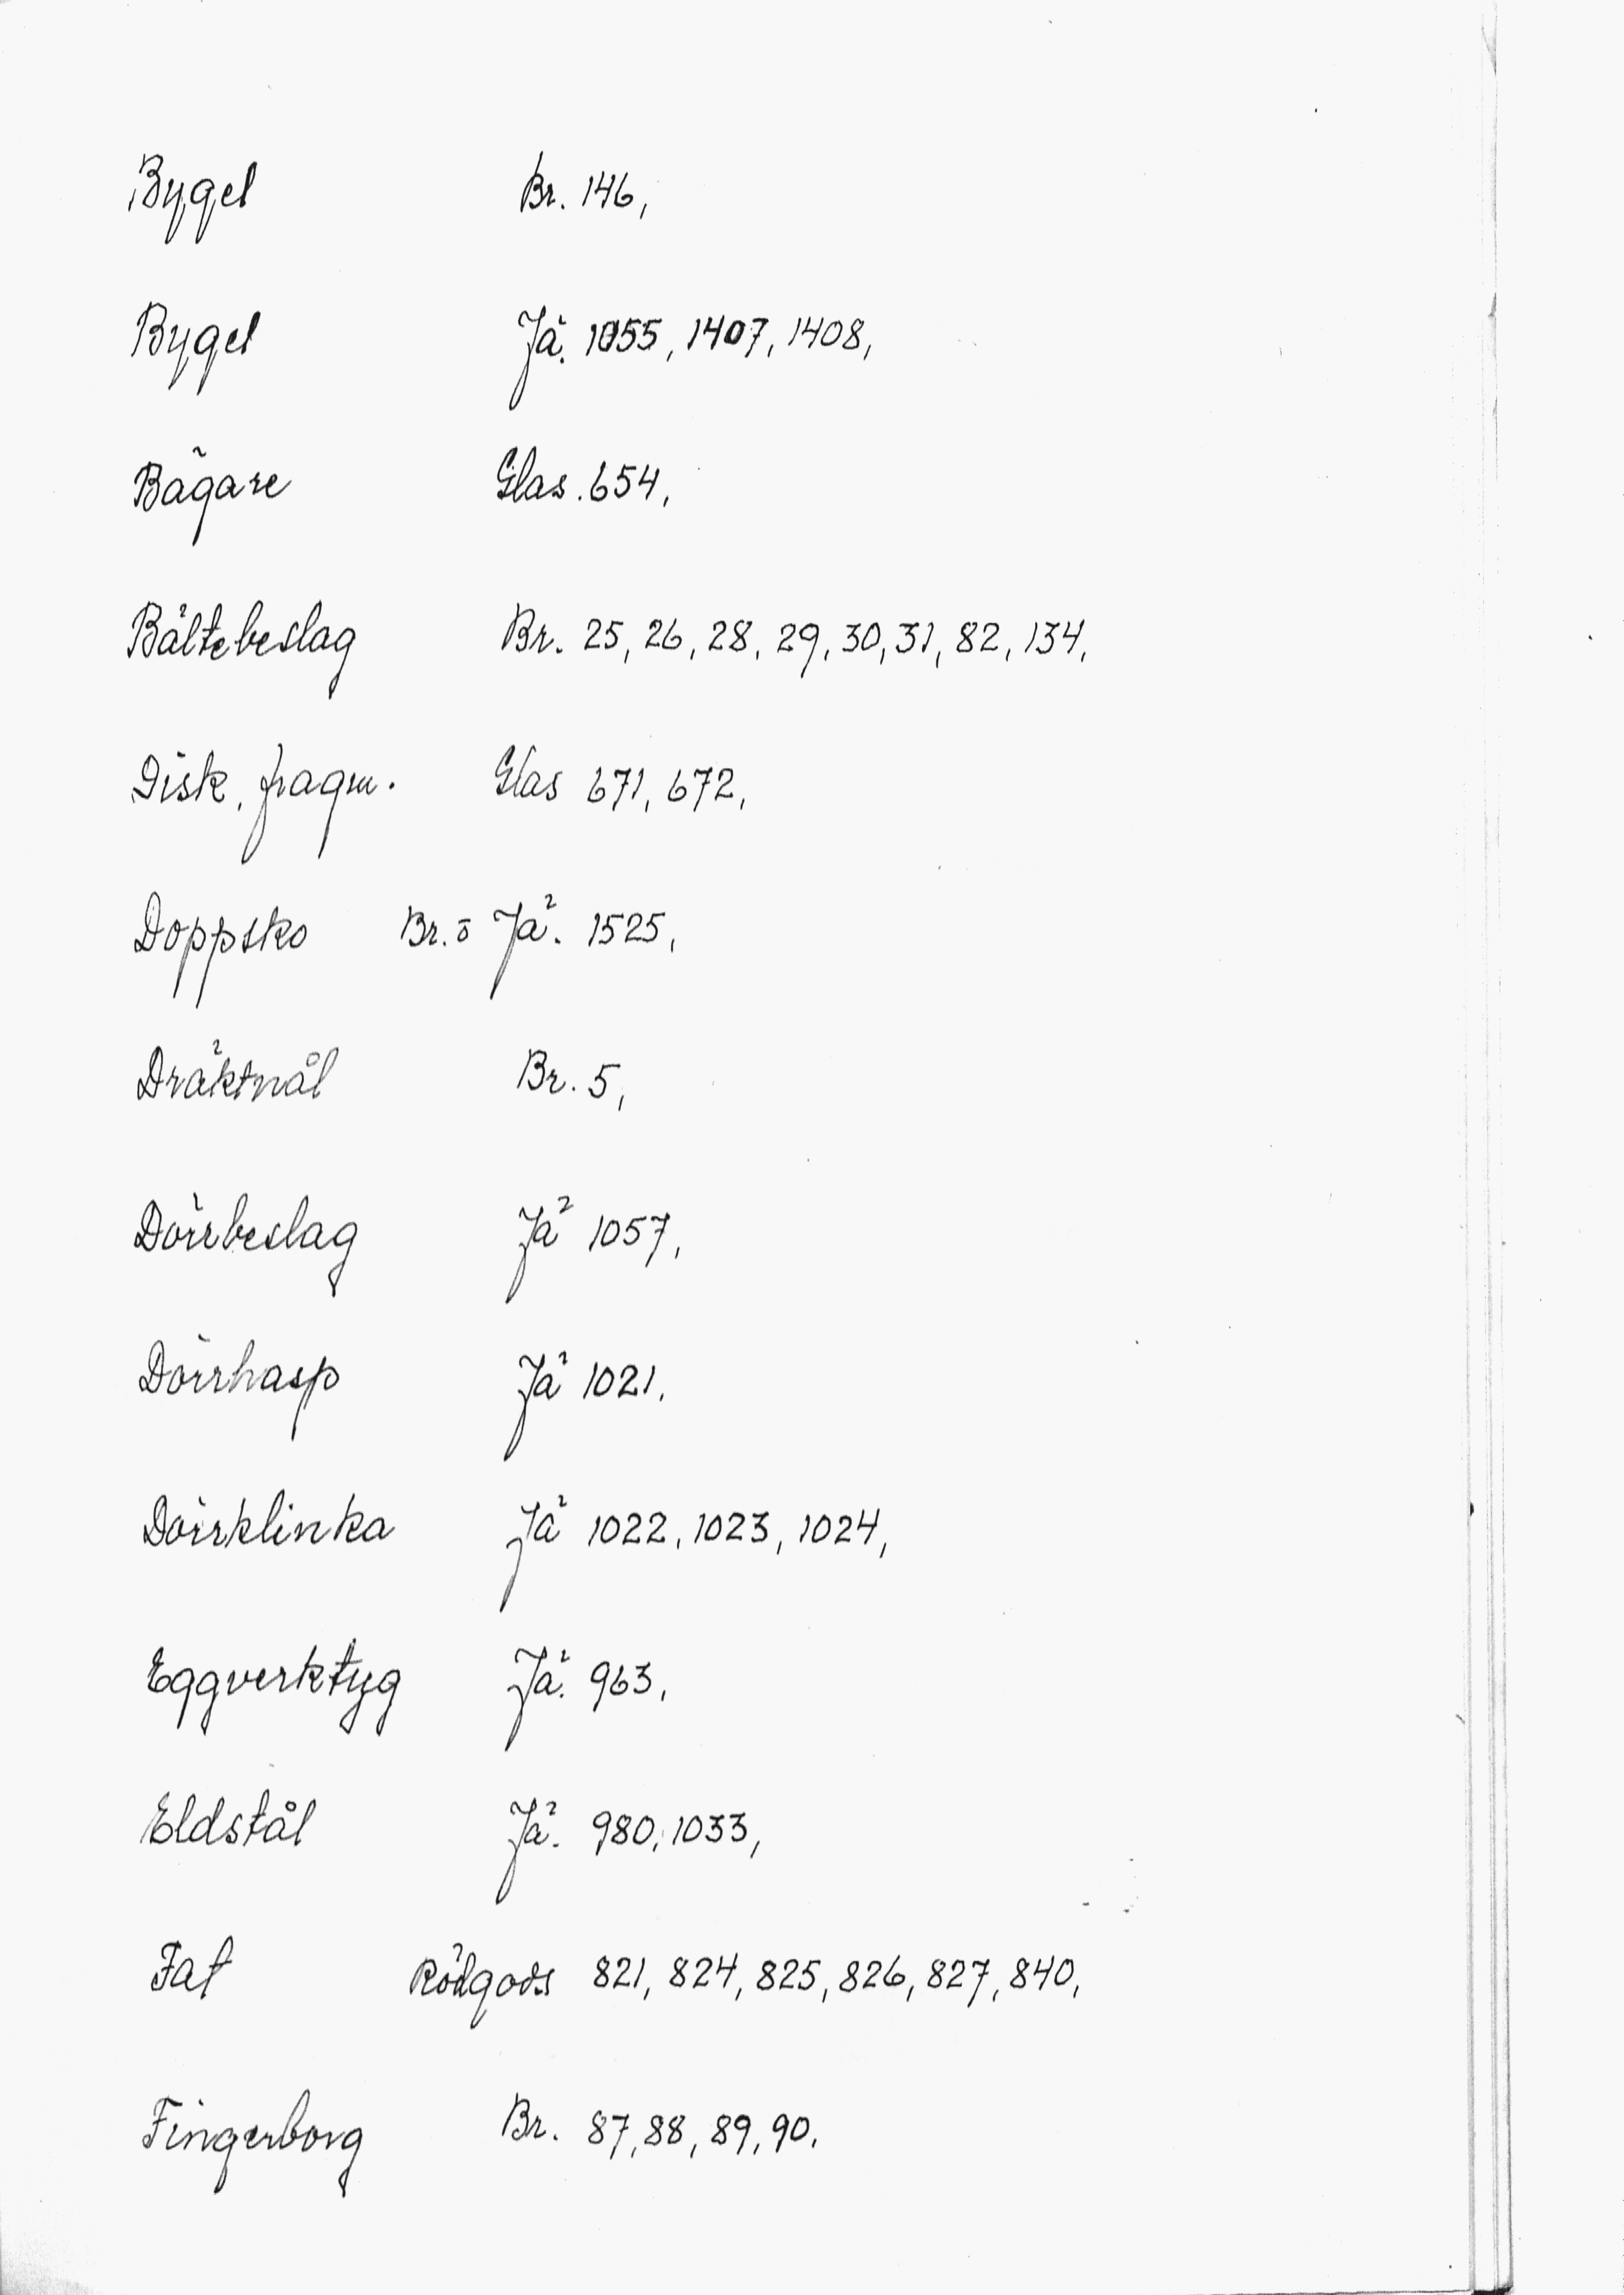 Bygel Br. 146,
Bygel Jä. 1055, 1407, 1408,
Bägare Glas. 654,
Bältebeslag Br. 25, 26, 28, 29, 30, 31, 82, 134,
Disk, fragm. Glas 671, 672,
Doppsko Br. o Jä. 1525,
Dräktnål Br. 5,
Dörrbeslag Jä 1057,
Dörrhasp Jä 1021,
Dörrklinka Jä 1022, 1023, 1024,
Eggverktyg Jä. 963,
Eldstål Jä. 980, 1033,
Fat Rödgods 821, 824, 825, 826, 827, 840,
Fingerborg Br. 87, 88, 89, 90,